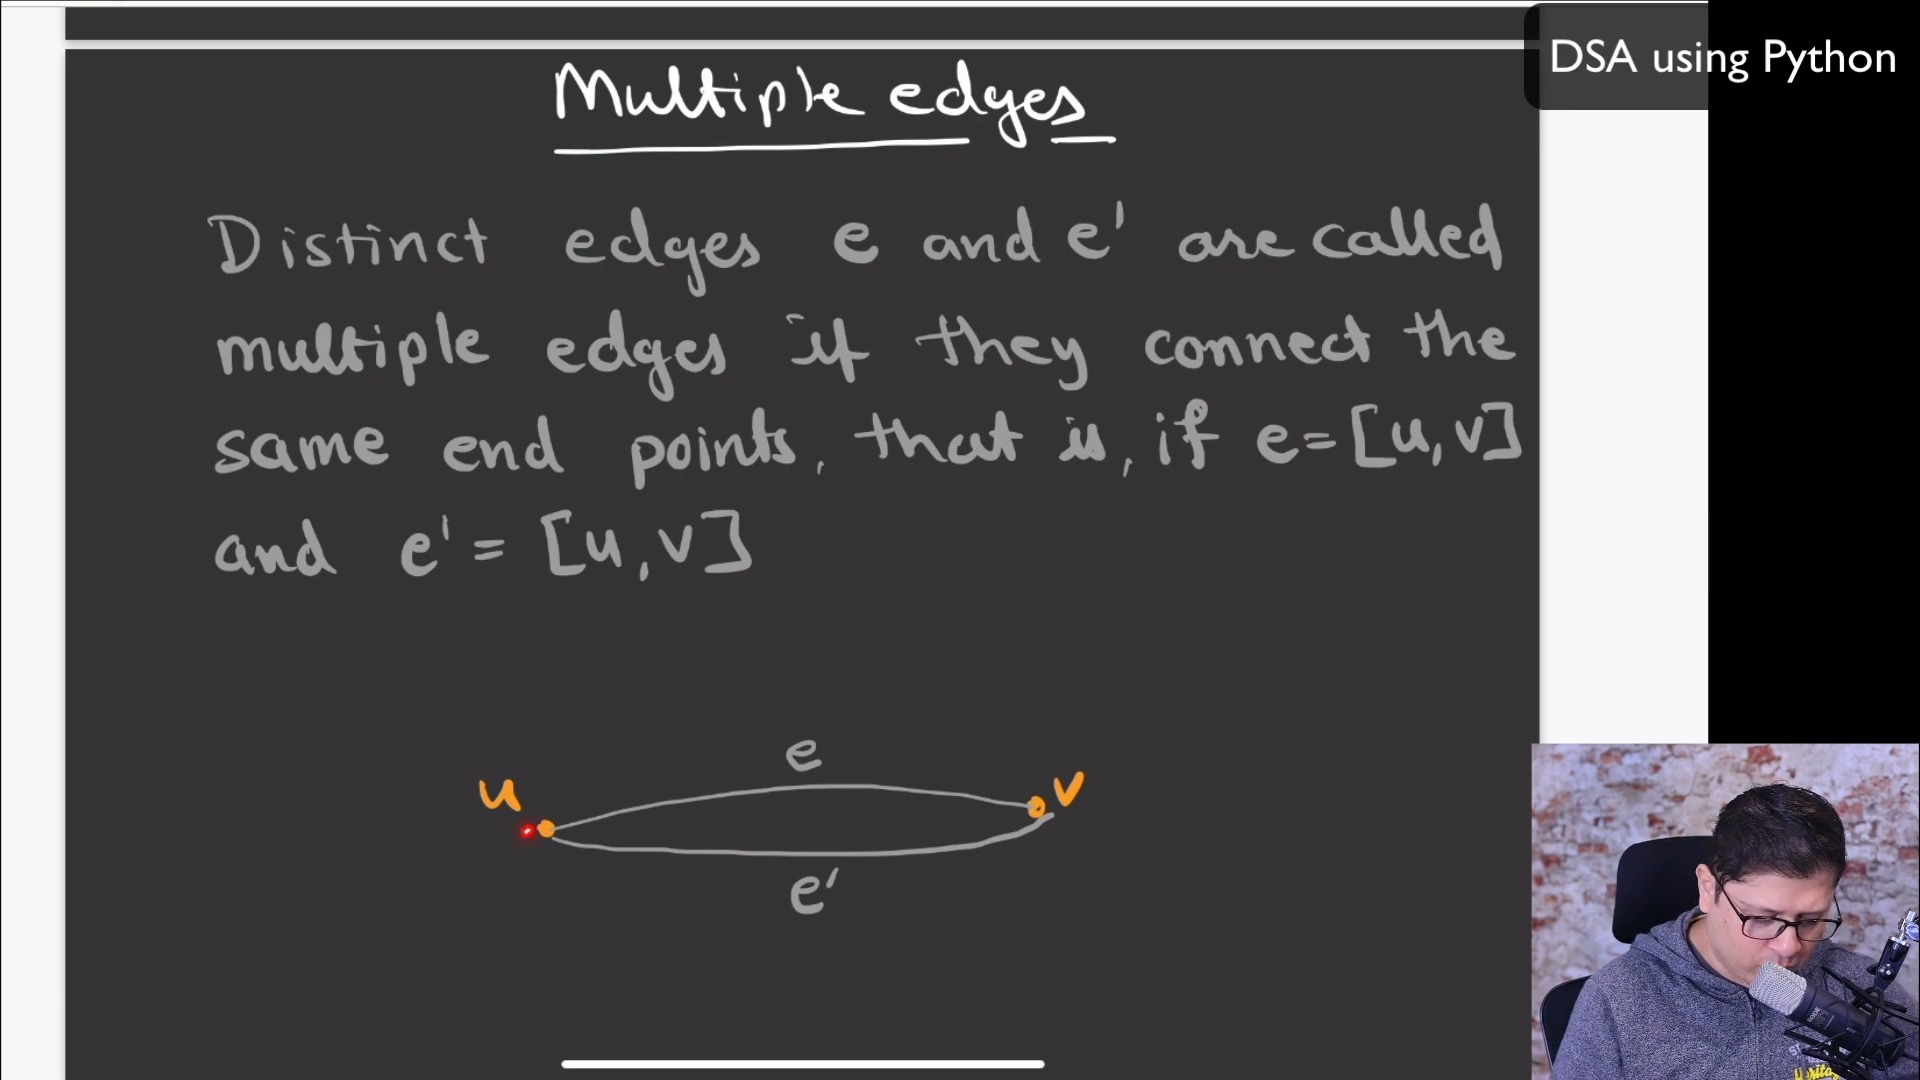 DSA using Python
Multiple edges
Distinct edges e and e' are called
multiple edges if they connect the
same end points, that is, if e=[u,v]
and e' = [u,v]
e
u
v
e'